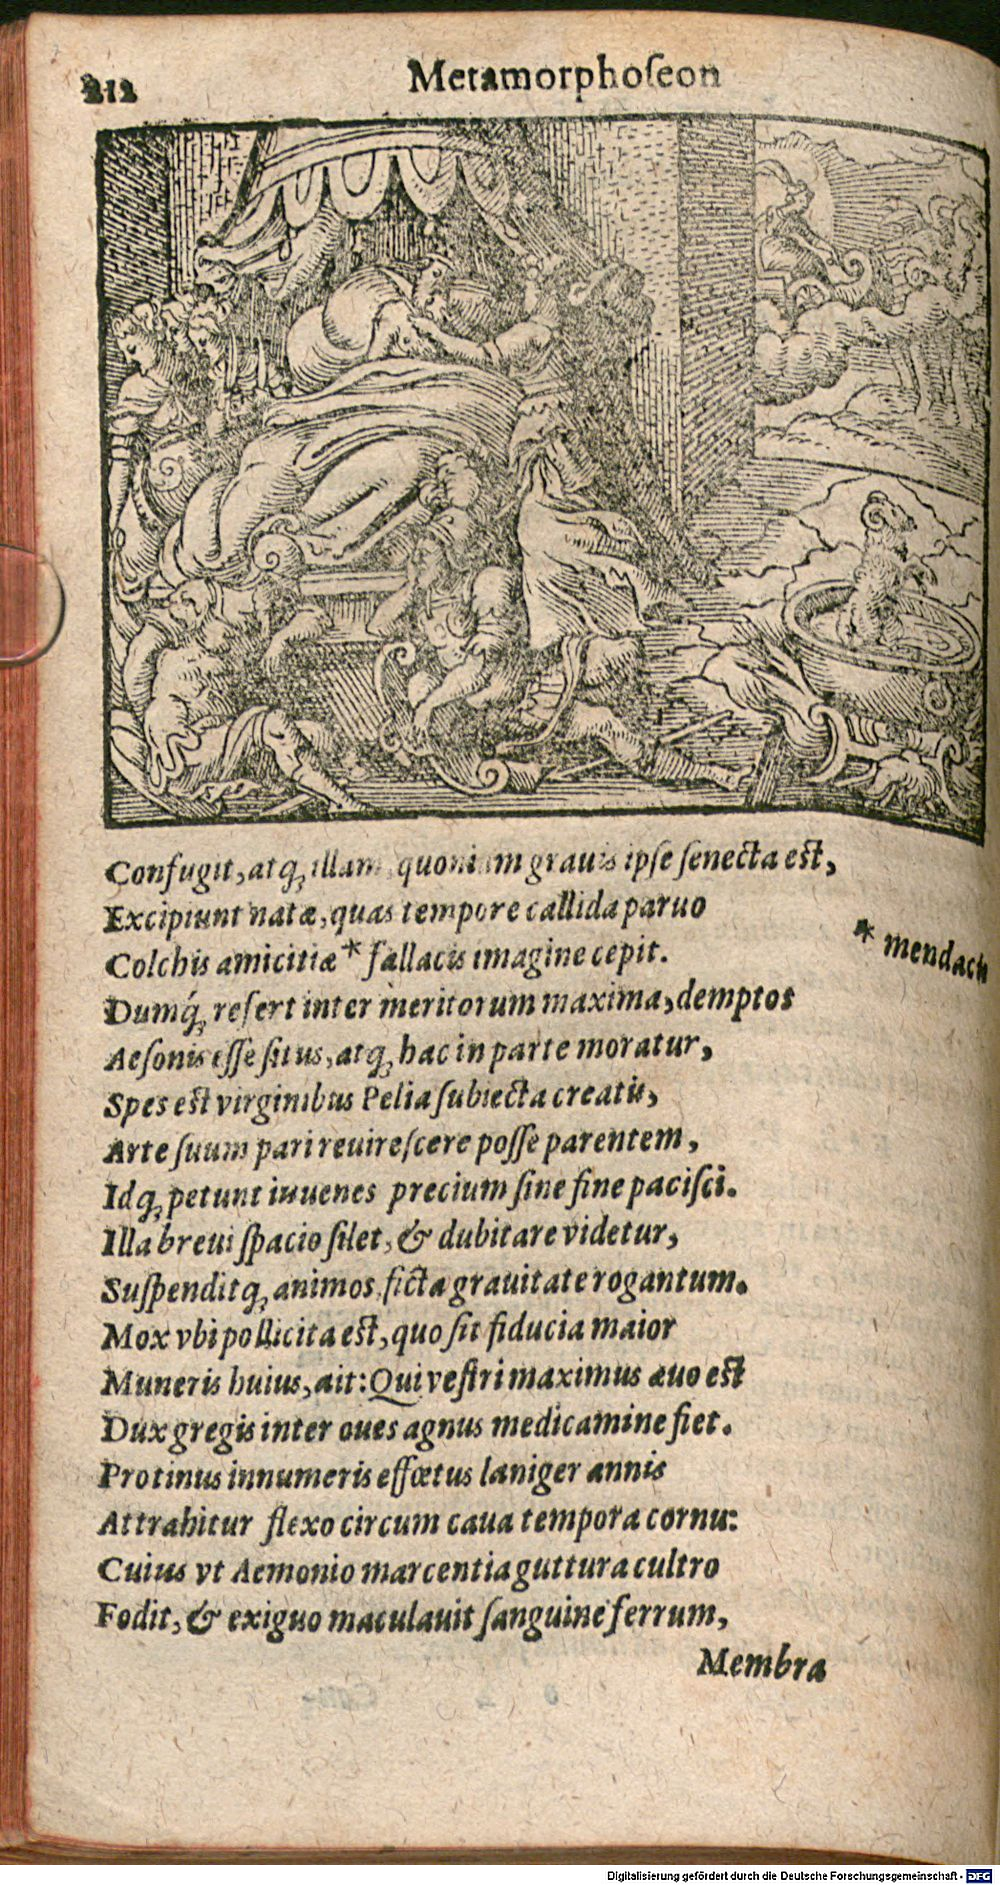 212
Metamorphoſeon
Confugit, atq; illam, quoniam grauis ipſe ſenecta est,
Excipiunt natæ, quas tempore callida paruo
Colchis amicitiæ * fallacis imagine cepit.
* mendacis
Dumq́; refert inter meritorum maxima, demptos
Aeſonis eſſe ſitus, atq; hac in parte moratur,
Spes est virginibus Pelia ſubiecta creatis,
Arte ſuum pari reuireſcere poſſe parentem,
Idq; petunt iuuenes precium ſine fine paciſci.
Illa breui ſpacio ſilet, & dubitare videtur,
Suſpenditq; animos ficta grauitate rogantum.
Mox vbi pollicita est, quo ſit fiducia maior
Muneris huius, ait: Qui veſtri maximus æuo est
Dux gregis inter oues agnus medicamine fiet.
Protinus innumeris effœtus laniger annis
Attrahitur flexo circum caua tempora cornu:
Cuius vt Aemonio marcentia guttura cultro
Fodit, & exiguo maculauit ſanguine ferrum,
Membra
Digitalisierung gefördert durch die Deutsche Forschungsgemeinschaft - DFG